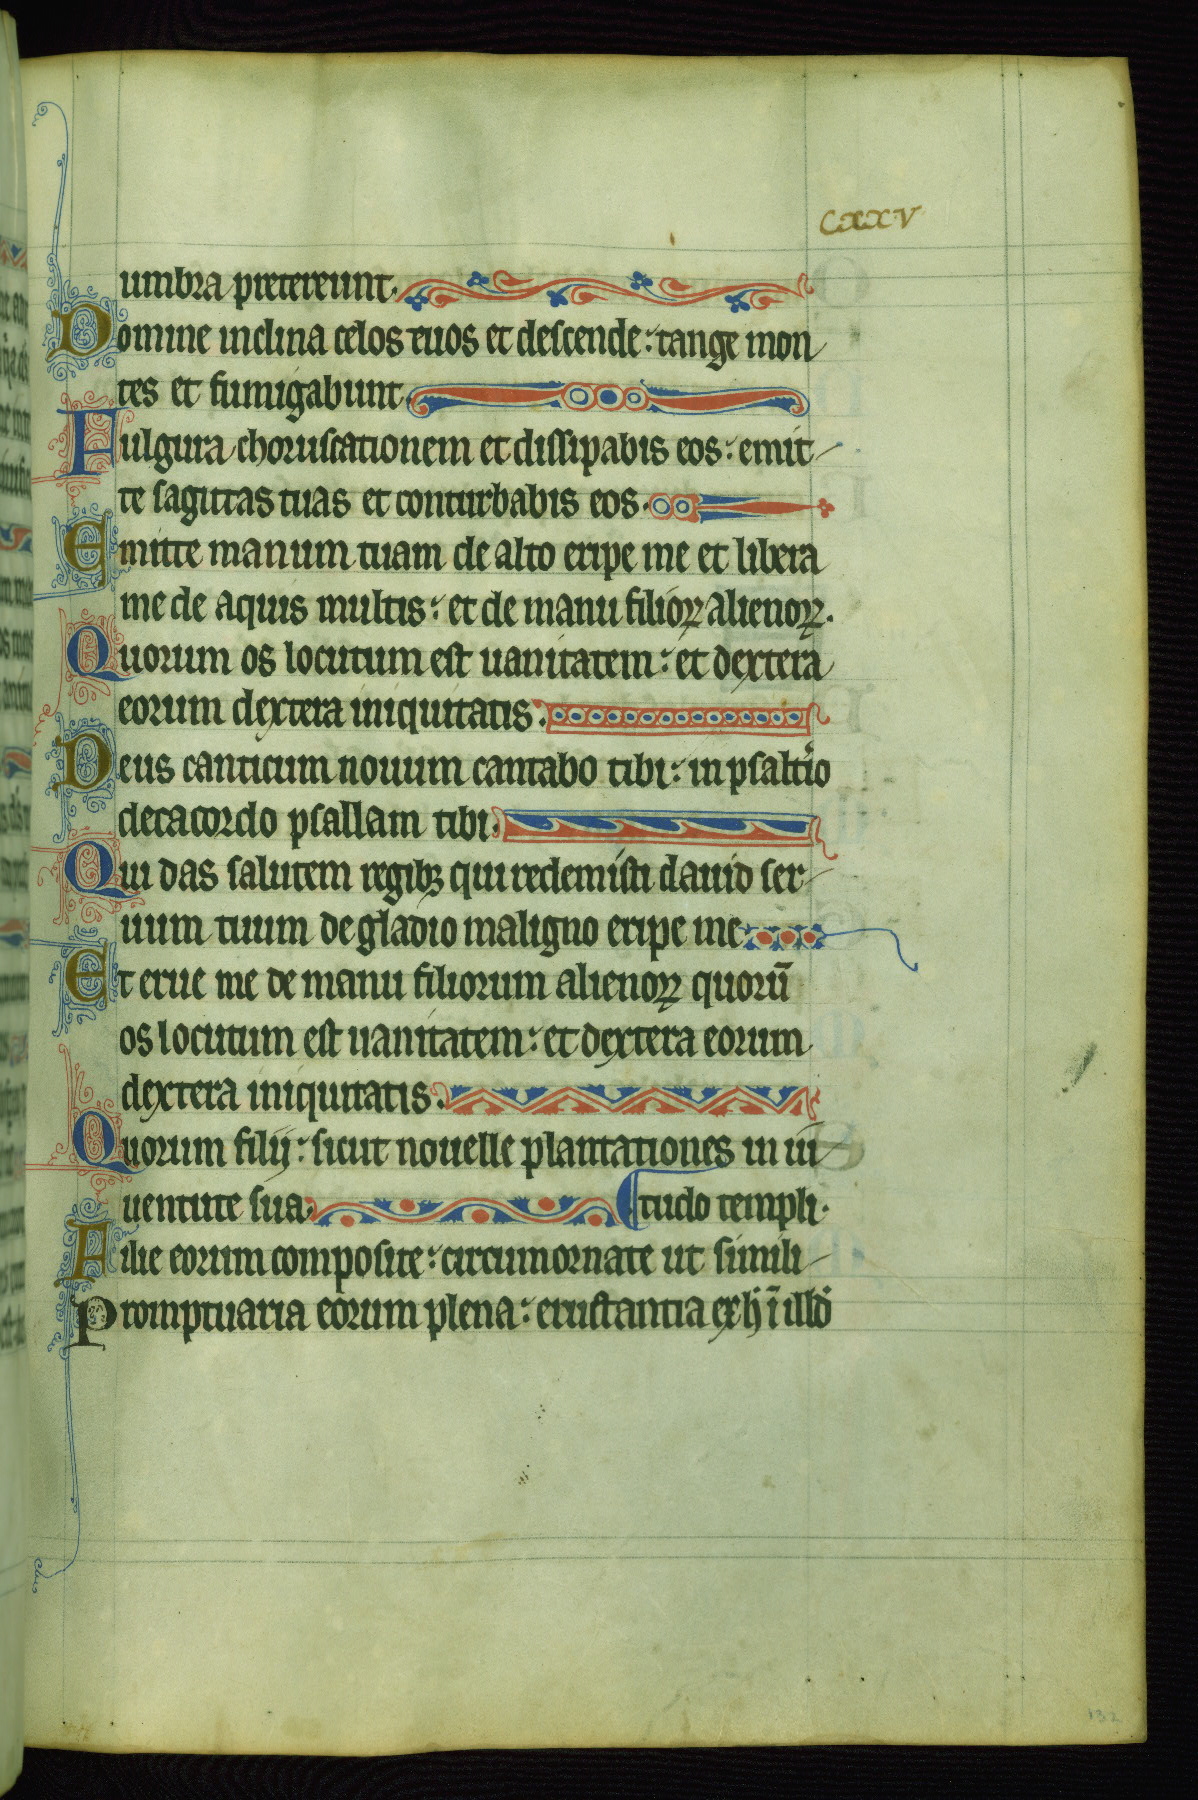 CXXV
umbra pretereunt.
Domine inclina celos tuos et descende: tange mon
tes et fumigabunt.
Fulgura choruscationem et dissipabis eos: emit
te sagittas tuas et conturbabis eos.
Emitte manum tuam de alto eripe me et libera
me de aquis multis: et de manu filioꝝ alienoꝝ.
Quorum os locutum est uanitatem: et dextera
eorum dextera iniquitatis.
Deus canticum nouum cantabo tibi: in psaltio
decacordo psallam tibi.
Qui das salutem regibꝫ qui redemisti dauid ser
uum tuum de gladio maligno eripe me.
Et erue me de manu filiorum alienoꝝ quorū
os locutum est uanitatem: et dextera eorum
dextera iniquitatis.
Quorum filij: sicut nouelle plantationes in iu
uentute sua. tudo templi.
Filie eorum composite: circumornate ut simili
Promptuaria eorum plena: eructantia ex h ī illd
132